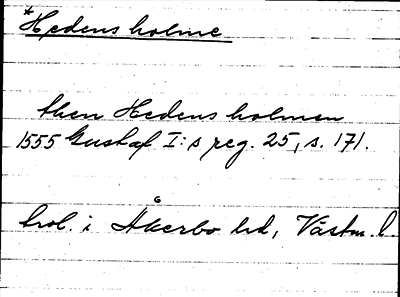 *Hedensholme
then Hedensholmen
1555 Gustaf I:s reg. 25, s. 171.
hol. i Åkerbo hd, Västm. l.